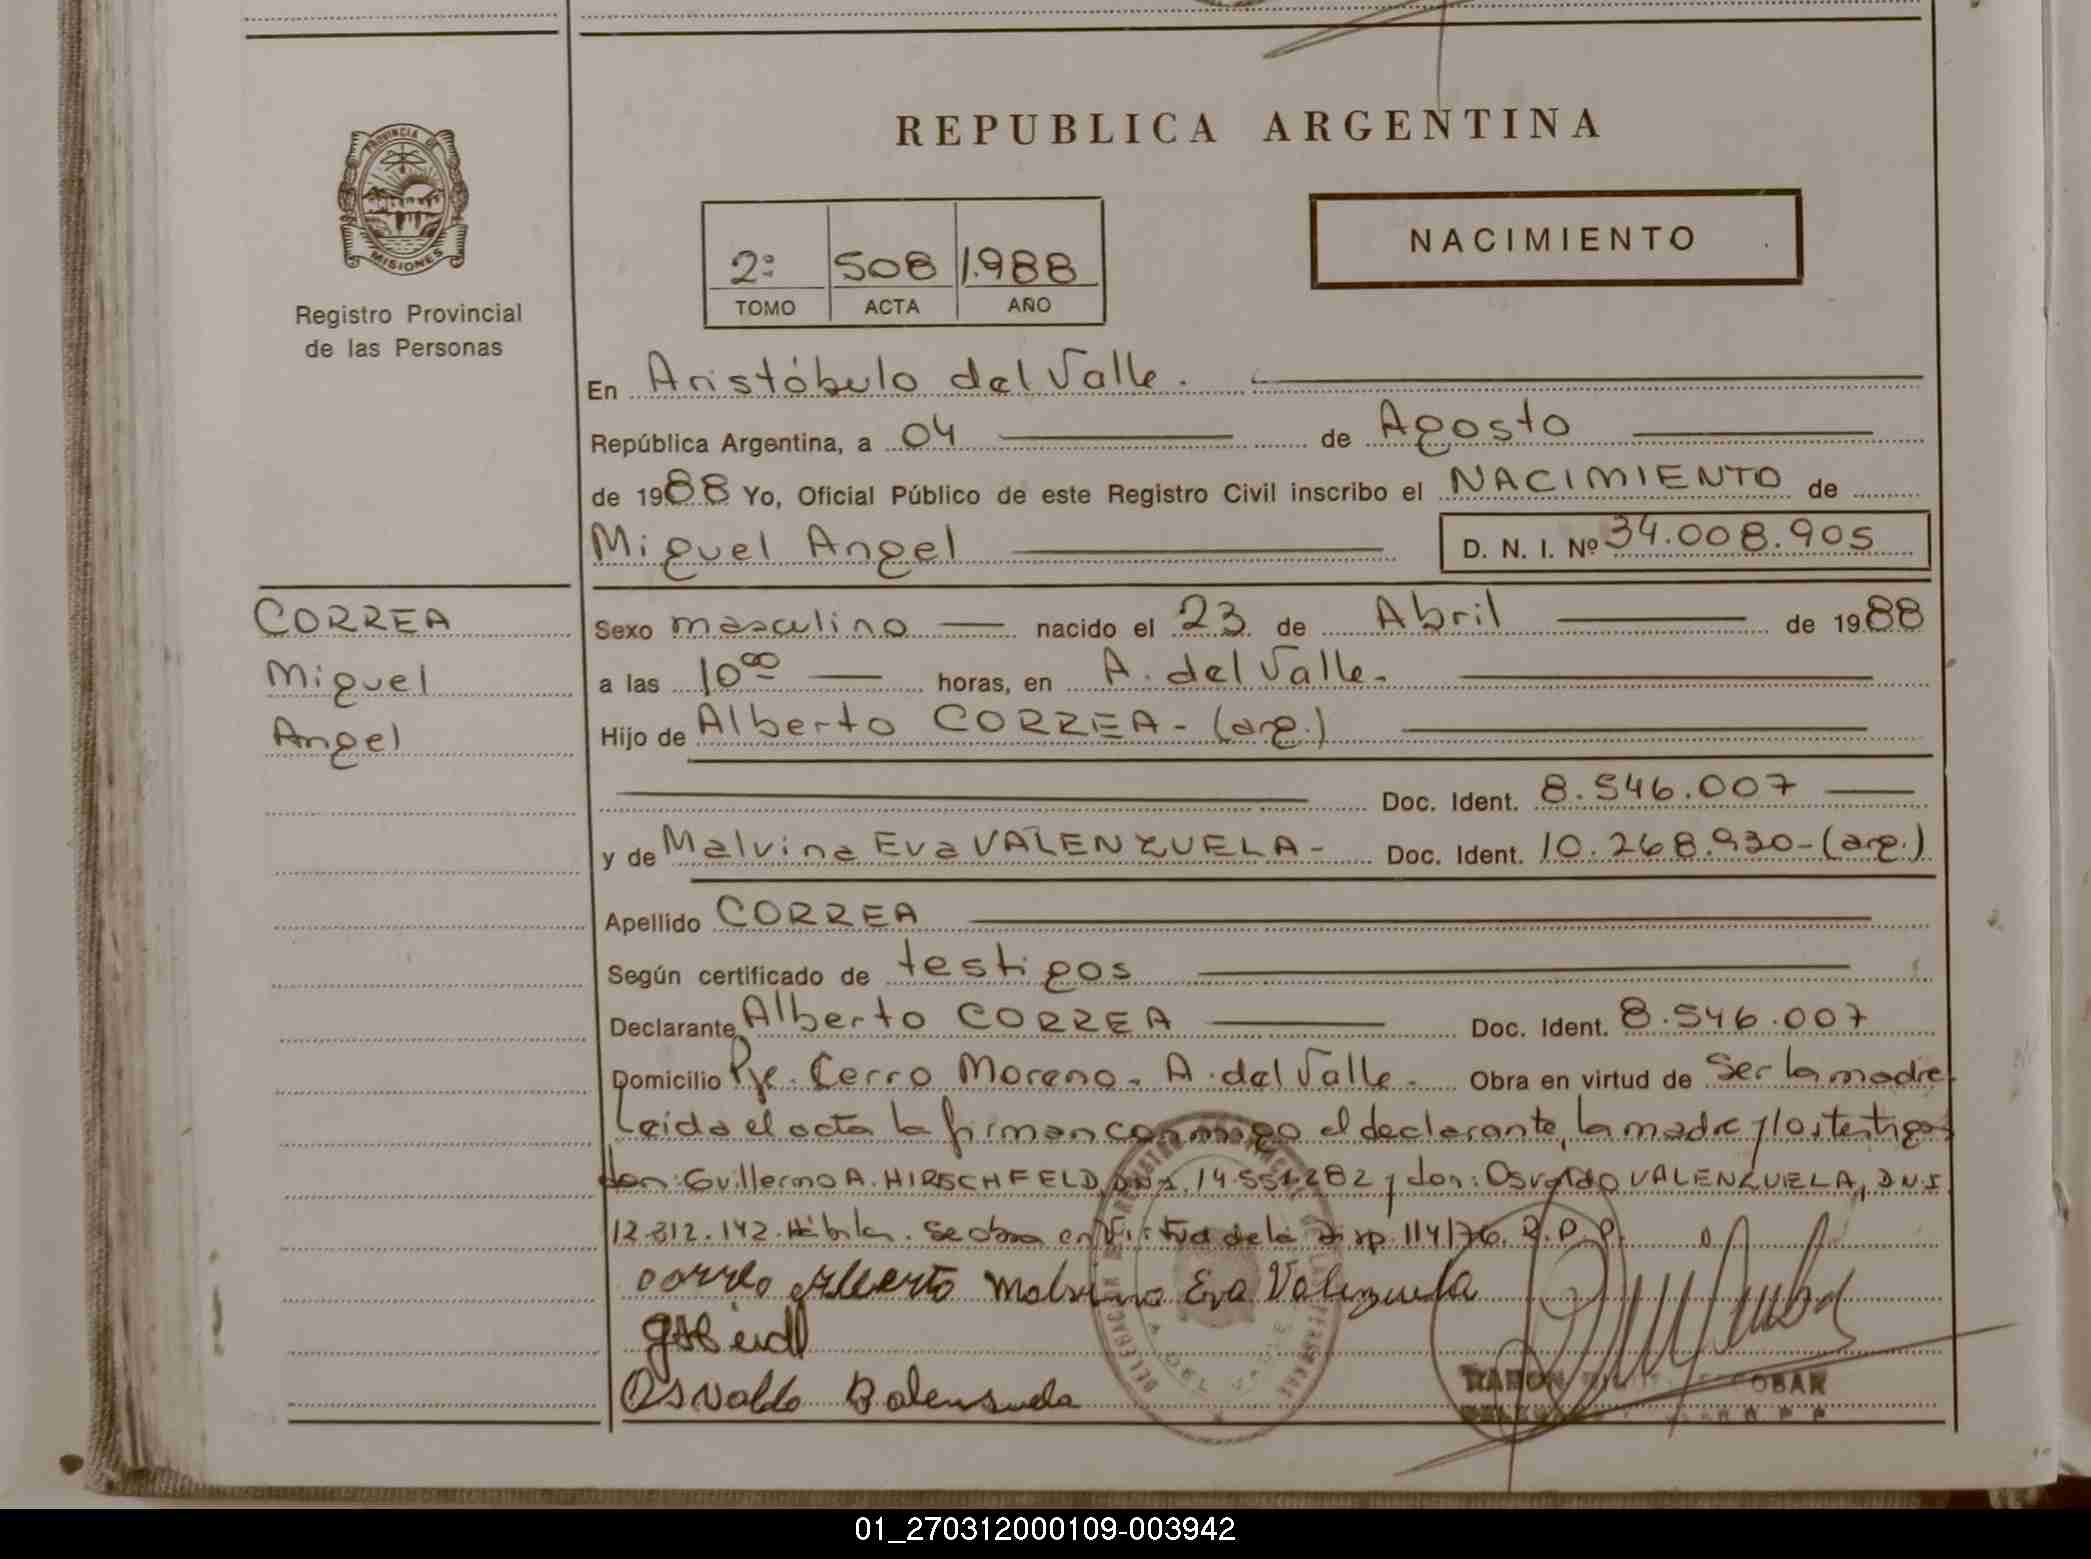 PROVINCIA DE
MISIONES
Registro Provincial
de las Personas
CORREA
Miguel
Angel
REPUBLICA ARGENTINA
2º 508 1.988
TOMO ACTA AÑO
NACIMIENTO
En Aristóbulo del Valle.
República Argentina, a 04 de Agosto
de 1988 Yo, Oficial Público de este Registro Civil inscribo el NACIMIENTO de
Miguel Angel D. N. I. Nº 34.008.905
Sexo masculino nacido el 23 de Abril de 1988
a las 10 00 horas, en A. del Valle.
Hijo de Alberto CORREA - (arg.)
Doc. Ident. 8.546.007
y de Malvina Eva VALENZUELA - Doc. Ident. 10.268.930 - (arg.)
Apellido CORREA
Según certificado de testigos
Declarante Alberto CORREA Doc. Ident. 8.546.007
Domicilio Pje. Cerro Moreno - A. del Valle. Obra en virtud de Ser la madre
Leida el acta la firman conmigo el declarante, la madre y los testigos
don: Guillermo A. HIRSCHFELD, DNI. 14.551.282 y don: Osvaldo VALENZUELA, DNI
12.312.142. Hábiles. Se obra en Virtud de la Disp. 114/76. R.P.P.
Correa Alberto Malvina Eva Valenzuela
Osvaldo Balensuela
DELEGACION
A. DEL VALLE
RAMON ESCOBAR
01_270312000109-003942